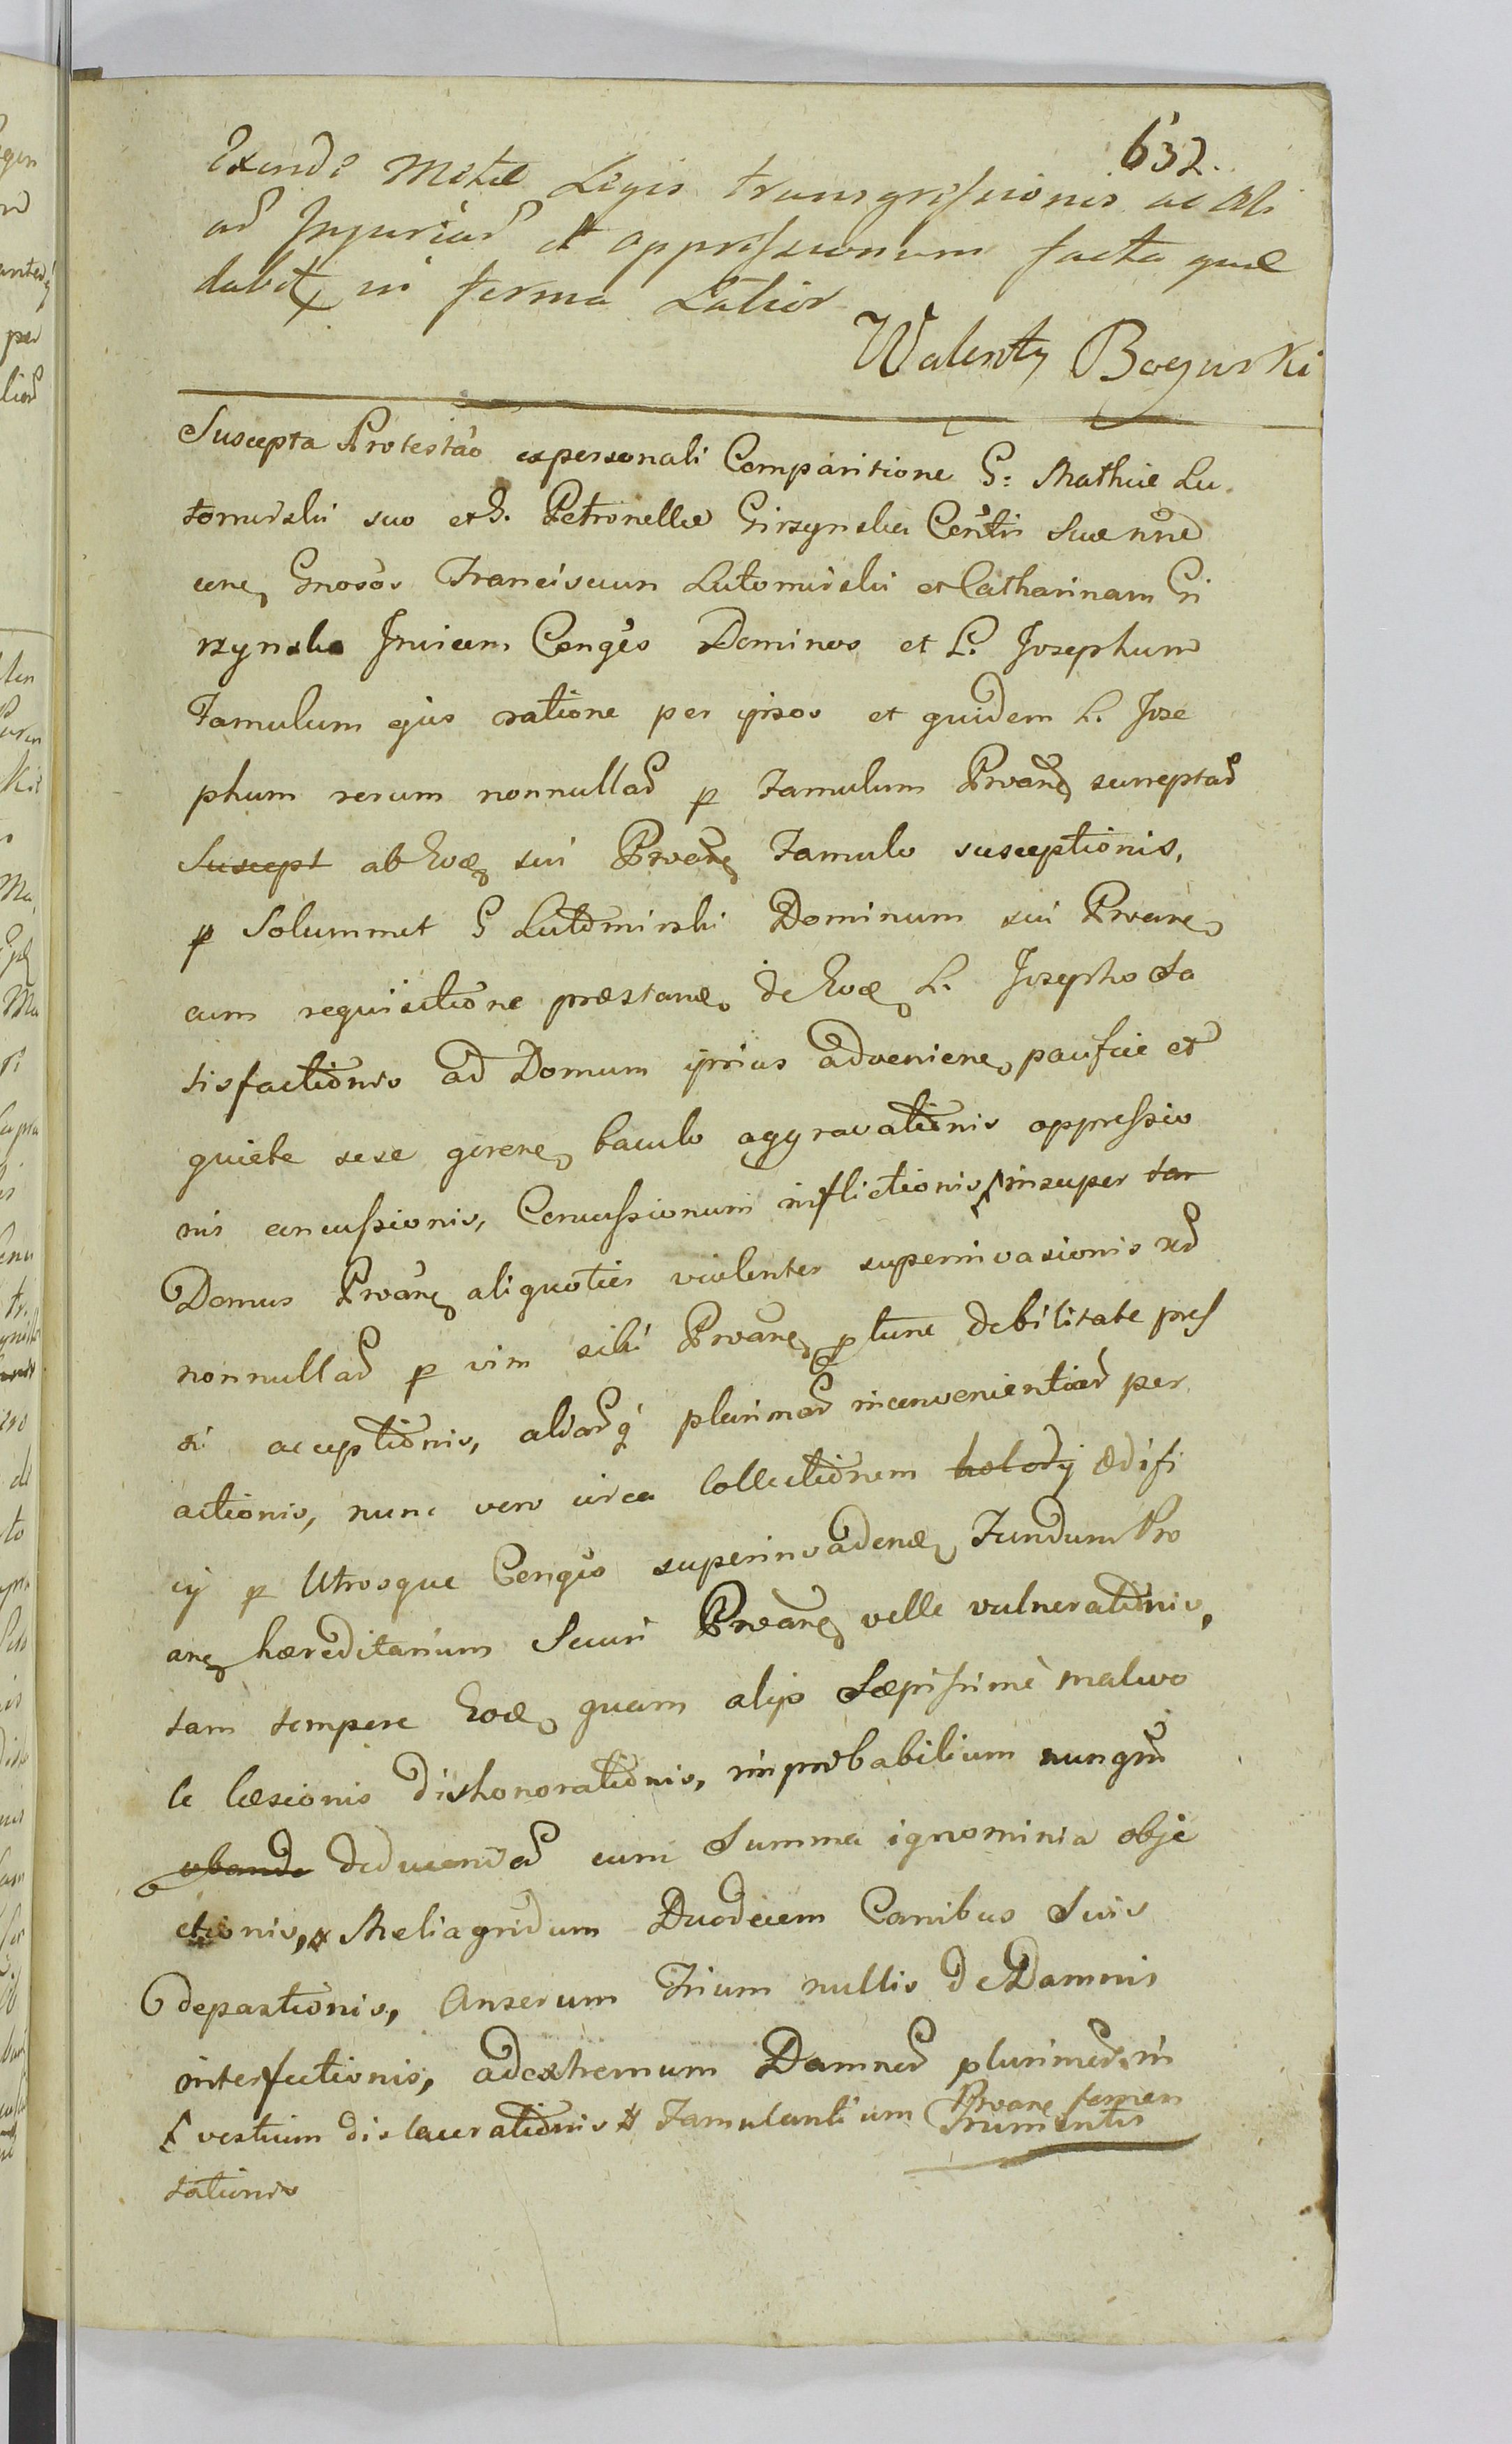 632.
Exinde Motæ Legis transgressionis ac Ali
ad Injuriad et oppressionum facta quæ
dabit in forma Latior
Walenty Bogurski
Suscepta Protestão ex personali Comparitione G: Mathiæ Lu
tomirski suo et G. Petronellæ Girzynska Contis suæ nne
cone, Gnosos Franciscum Lutomirski et Catharinam Gi
rzynska Invicem Conges Dominos et L. Josephum
Famulum ejus ratione per ipsos et quidem L. Jose
phum rerum nonnullad p Famulum Prvane surreptad
Suscept ab Eode sui Prvane Famulo susceptionis,
p Solummet G Lutomirski Dominum sui Prvane
cum requisitione præstanæ de Eode L. Josepho Sa
tisfactionis ad Domum ipsius adveniene, pacifice et
quiete sese gerene, baculo aggravationis oppressio
nis concussionis, Concussionum inflictionis insuper tan
Domus Prvane aliquoties violenter superinvasionis
nonnullad p vim sibi Prvane p tunc debilitate pres
si acceptionis, aliadq plurimad inconvenientiad per
actionis, nunc vero circa Collectionem ædifi
cij p Utrosque Conges superinvadenæ Fundum Pro
ane hæreditarium Securi Prvane velle vulnerationis,
tam tempore Eode, quam alijs Sæpissimè malevo
le læsionis dishonorationis, improbabilium nunqm
deducendad cum Summa ignominia obje
ctionis, Meliagridum Duodecem Canibus Suis
depastionis, Anserum Trium nullis de Damnis
interfectionis, adextremum Damnod plurimod in
vestium dislacerationis Famulantium Prvane temen
Frumentis
tationis